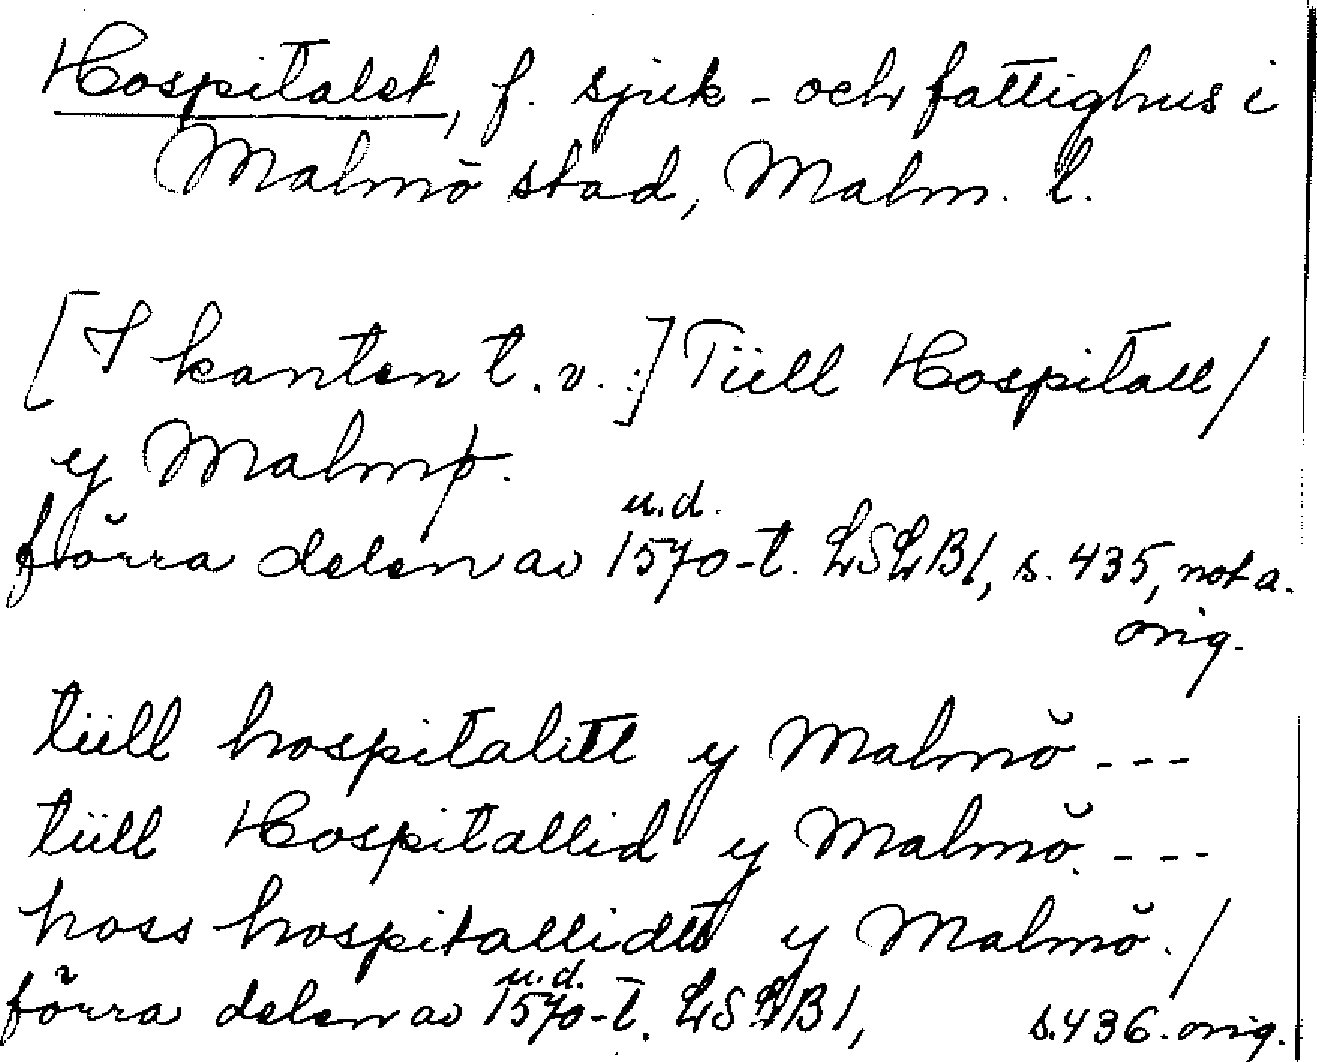 Hospitalet, f. sjuk- och fattighus i
Malmö stad, Malm. l.
[I kanten t.v.:] Tüll Hospitall/
y Malmø.
u.d.
förra delen av 1570-t. LSLB1, s. 435, not a.
orig.
tüll hospitalitt y Malmö ---
tüll Hospitallid y Malmö. ---
hoss hospitallidtt y Malmö./
u.d.
förra delen av 1570-t. LSLB1, s. 436. orig.